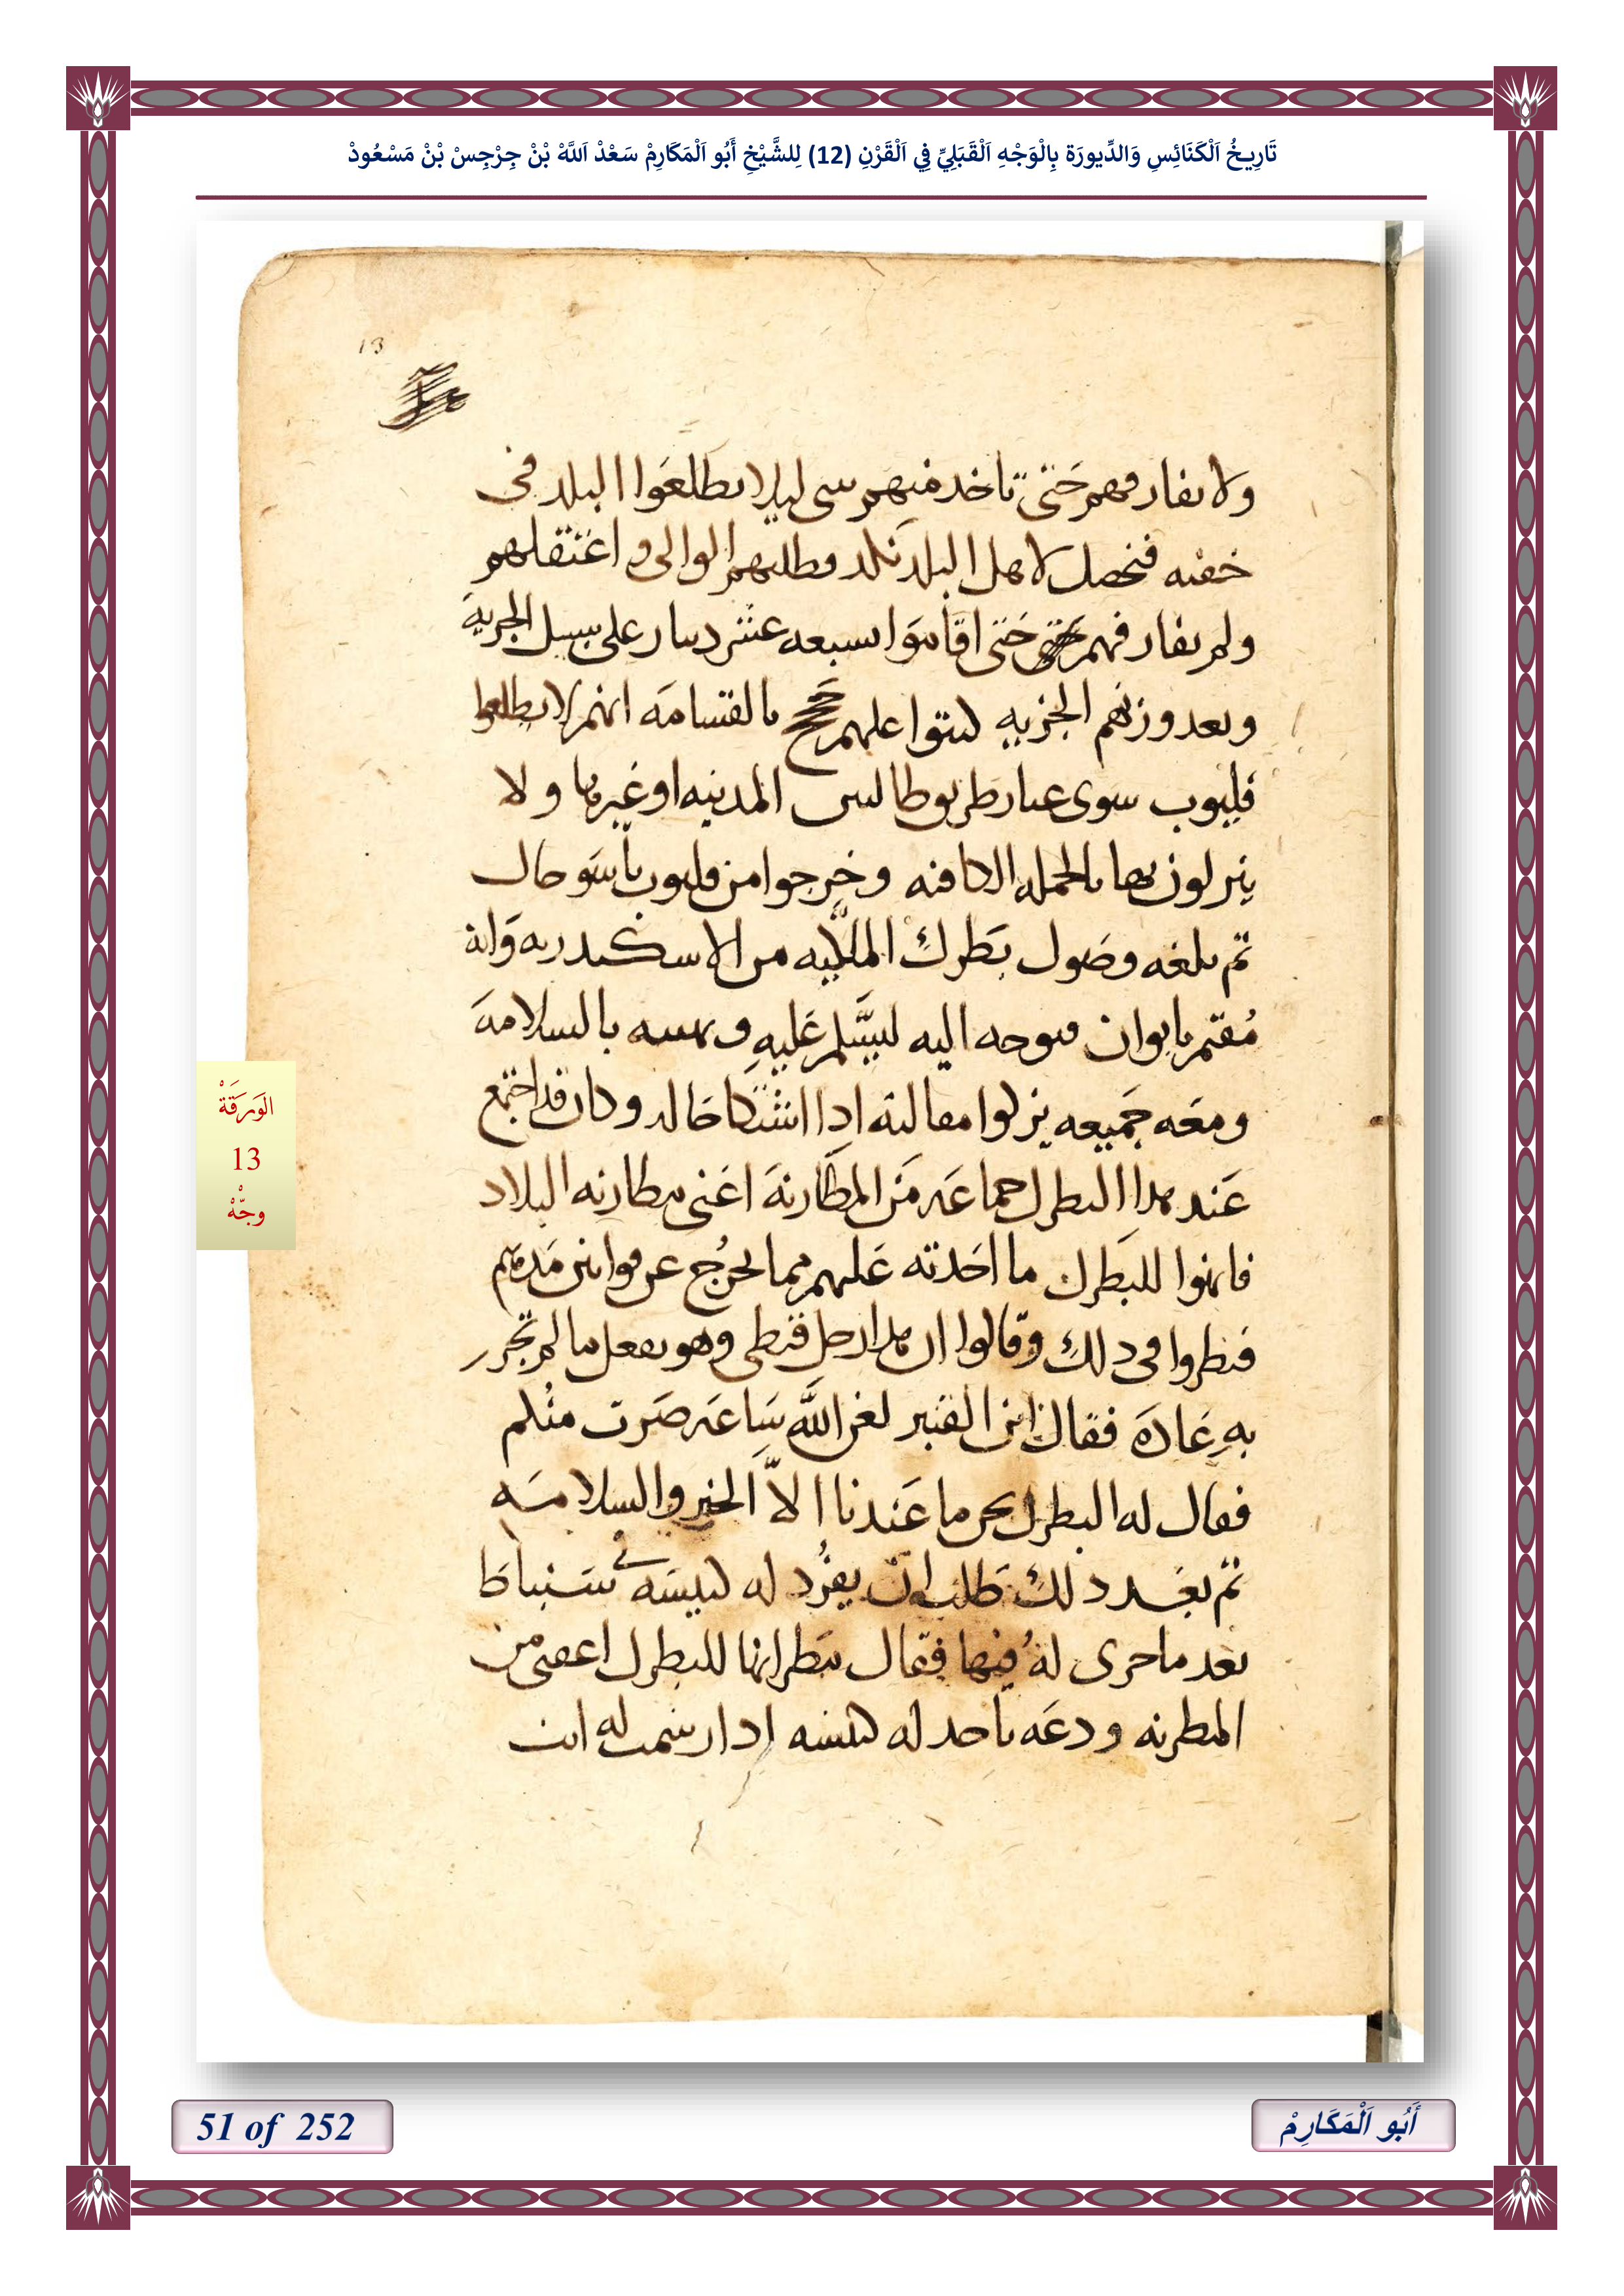 تَارِيخُ اَلْكَنَائِسِ وَالدِّيورَة بِالْوَجْهِ اَلْقَبَلِيِّ فِي اَلْقَرْنِ (12) لِلشَّيْخِ أَبُو اَلْمَكَارِمْ سَعْدْ اَللَّهْ بْنْ جِرْجِسْ بْنْ مَسْعُودْ
13
ولا نفارقهم حَتى تاخد منهم سى ليلا يطلعَوا البلد فى
خفيه فيحصل لاهل البلد نكد وطلبهم الوالى واعتقلهم
ولم يفارقهم حَتى اقاموَا سبعه عشر دينار على سبيل الجزيه
وبعد وزنهم الجزيه كتبوا عليهم بالقسامَه انهم لا يطلعوا
قليوب سوى عبار طريق المدينه او غيرها ولا
ينزلون بها بالجمله الكافيه وخرجوا من قليوب باسَو حال
ثم بلغه وصَول بَطرك الملكيه من الاسكندريه وَانه
مُقيم بابوان فتوجه اليه ليسَلم عَليهِ ويهنيه بالسلامهَ
ومعَه جَميعه نزلوا مقالته ادا اشتكا حَاله وكان قد اجتمع
عَند هدا البطرك جماعَه مَن المطَارنهَ اعَنى مطارنه البلاد
فانهوا للبَطرك ما احَدته عَليهم مما يخرُج عن قوانين مَدهبهم
فنظروا فى دلك وقالوا ان هدا رجل قبطى وهو يفعل ما لم تجر
بهِ عَادَه فقال ابن القنبر لعن الله سَاعَه صَرت منكم
فقال له البطرك نحن ما عَندنا الاّ الخير والسلامَه
ثم بعَد دلك طَلب ان يفرُد له كنيسَه فى سَنباطَ
بعَد ما جرى لهُ فيها فقال مَطرانها للبطرك اعفى من
المطرنه ودعَه ياخد له كنيسه ادا رسمت له انت
الوَرَقَةْ
13
وجّهْ
51 of 252
أَبُو اَلْمَكَارِمْ